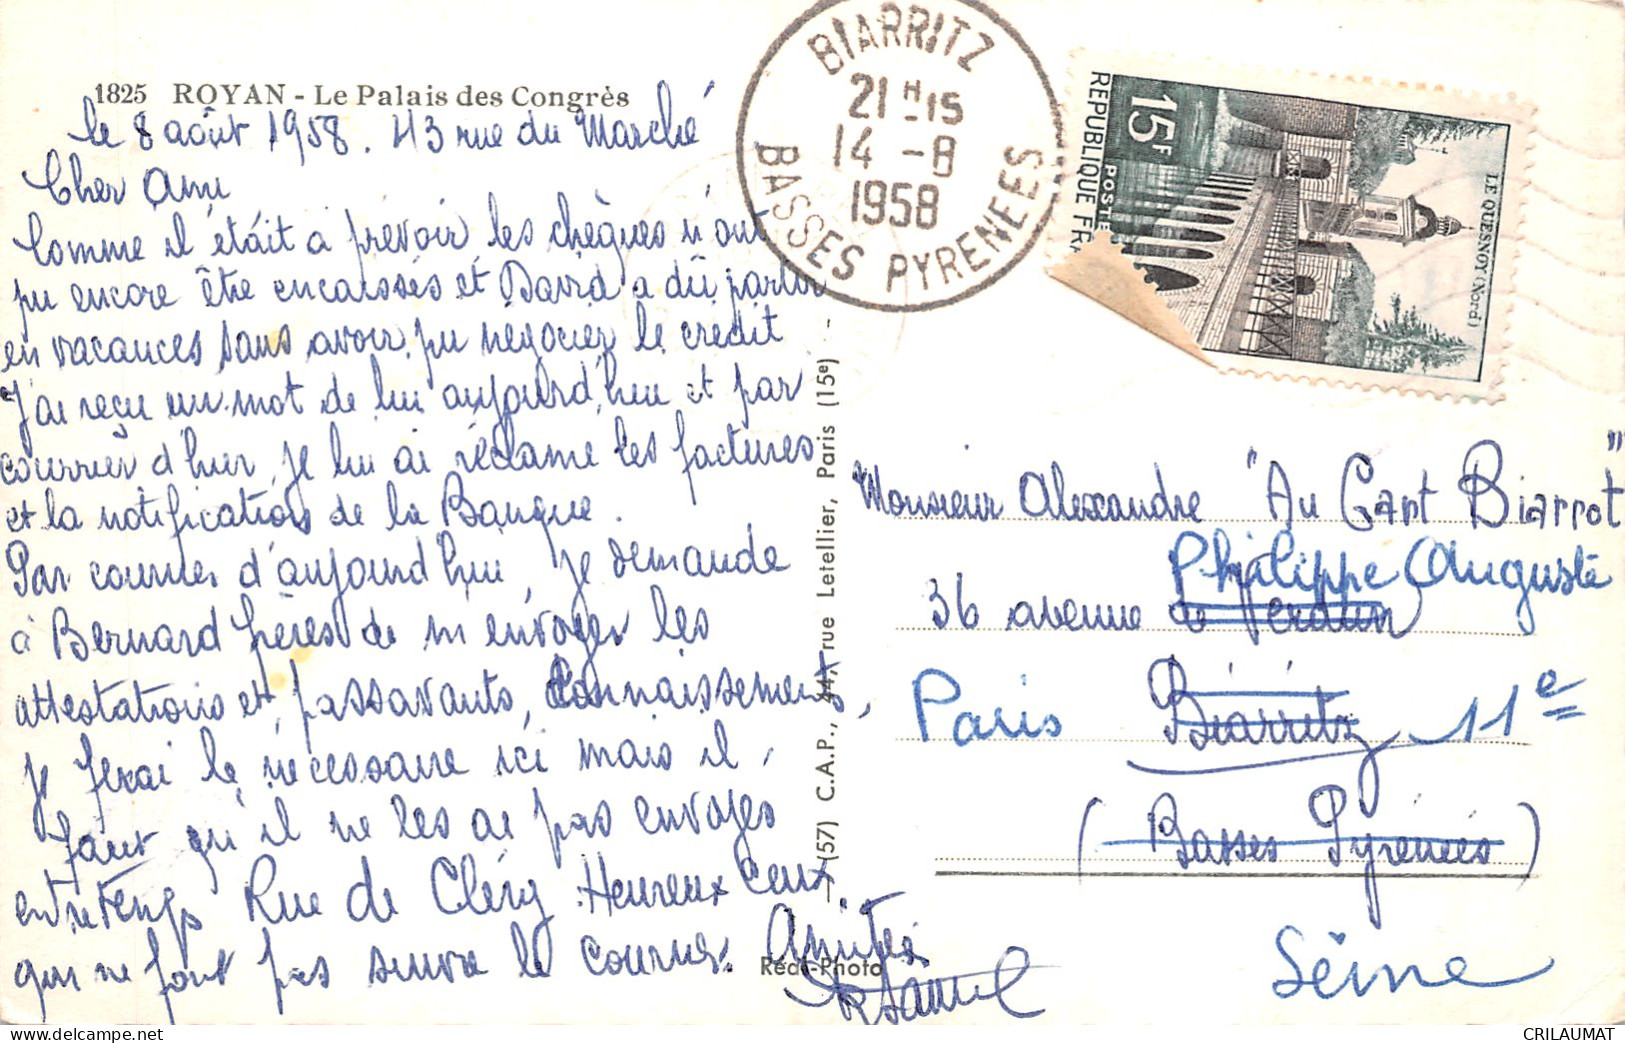 1825 ROYAN - Le Palais des Congrès
le 8 août 1958. 43 rue du Marché
Cher Ami
Comme il était à prévoir les chèques n'ont
pu encore être encaissés et David a dû partir
en vacances sans avoir pu négocier le crédit
J'ai reçu un mot de lui aujourd'hui et par
courrier d'hier je lui ai réclamé les factures
et la notification de la Banque.
Par courrier d'aujourd'hui, je demande
à Bernard frères de m'envoyer les
attestations et passavants, connaissements,
je ferai le nécessaire ici mais il
faut qu'il ne les ai pas envoyés
entretemps Rue de Cléry. Heureux ceux
qui ne font pas suivre le courrier. Amitiés
Samuel
Réal-Photo
(57) C.A.P., 44, rue Letellier, Paris (15e) -
BIARRITZ
21 H 15
14 - 8
1958
BASSES PYRENEES
15F
POSTES
REPUBLIQUE FR
LE QUESNOY (Nord)
Monsieur Alexandre "Au Gant Biarrot"
Philippe Auguste
36 avenue de Verdun
Paris Biarritz 11e
(Basses Pyrénées)
Seine
CRILAUMAT